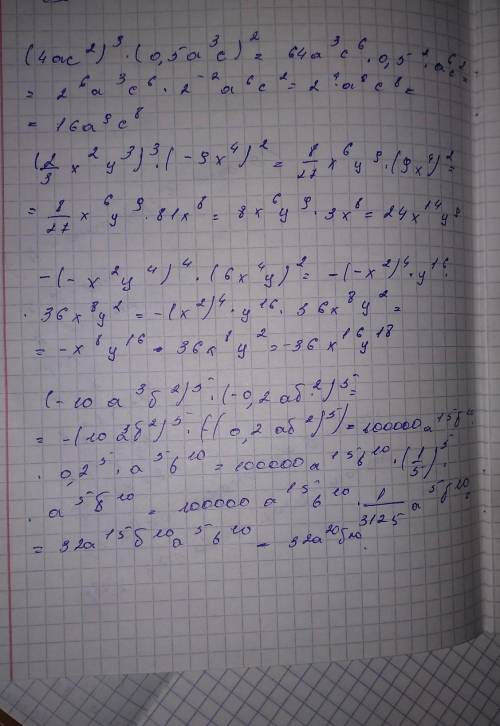 (4ac²)³ · (0,5a³c)² = 64a³c⁶ · 0,5² · a⁶c² =
= 2⁶a³c⁶ · 2⁻²a⁶c² = 2⁴a⁹c⁸ =
= 16a⁹c⁸
(2/3 x²y³)³ · (-9x⁴)² = 8/27 x⁶y⁹ · (9x⁴)² =
= 8/27 x⁶y⁹ · 81x⁸ = 8x⁶y⁹ · 3x⁸ = 24x¹⁴y⁹
-(-x²y⁴)⁴ · (6x⁴y)² = -(-x²)⁴ · y¹⁶ ·
· 36x⁸y² = -(x²)⁴ · y¹⁶ · 36x⁸y² =
= -x⁸y¹⁶ · 36x⁸y² = -36x¹⁶y¹⁸
(-10a³б²)⁵ · (-0,2aб²)⁵ =
= -(10 2б²)⁵ · (-(0,2aб²)⁵) = 100000a¹⁵б¹⁰ ·
· 0,2⁵ · a⁵в¹⁰ = 100000a¹⁵в¹⁰ · (1/5)⁵ ·
· a⁵б¹⁰ = 100000a¹⁵в¹⁰ · 1/3125 a⁵б¹⁰ =
= 32a¹⁵б¹⁰a⁵в¹⁰ = 32a²⁰б²⁰.